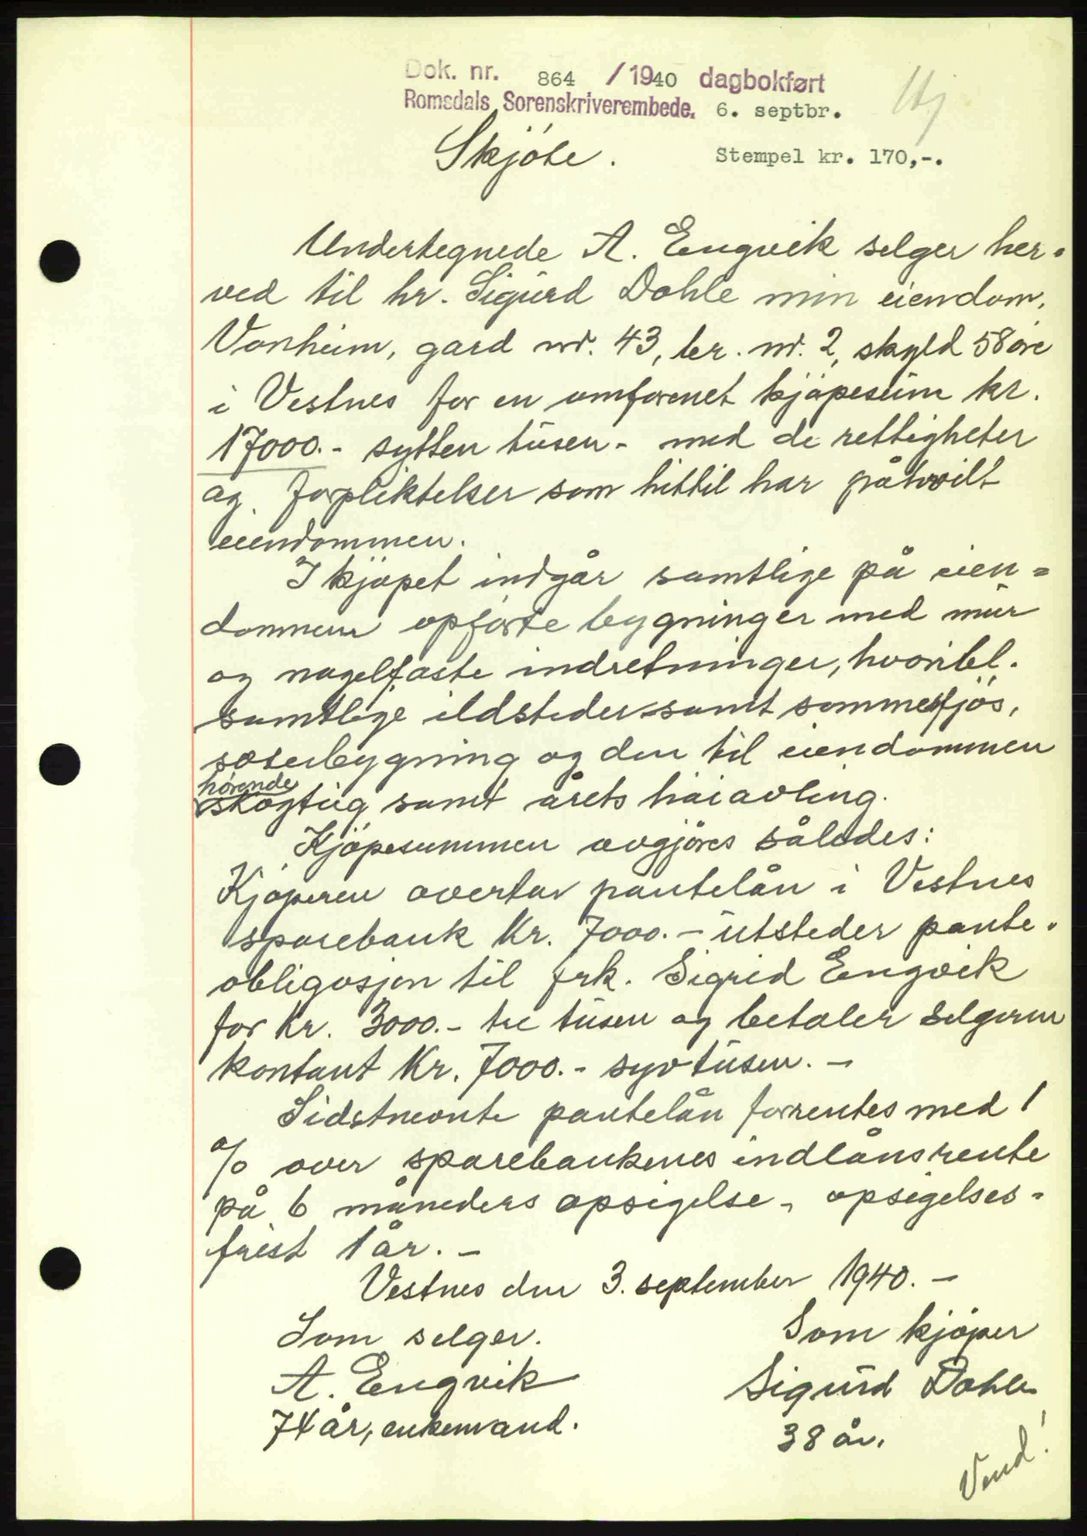 Dok. nr. 864 / 1940 dagbokført
Romsdals Sorenskriverembede. 6. septbr.
Skjöte. Stempel kr. 170,-.
Undertegnede A. Engvik selger her-
ved til hr. Sigurd Dahle min eiendom,
Vonheim, gard nr. 43, br. nr. 2, skyld 58 øre
i Vestnes for en omforenet kjöpesum kr.
17000.- sytten tusen - med de rettigheter
og forpliktelser som hittil har påhvilt
eiendommen.
I kjöpet indgår samtlige på eien=
dommen opförte bygninger med mur
og nagelfaste indretninger, hvoribl.
samtlige ildsteder - samt sommerfjös,
sæterbygning og den til eiendommen
hørende
skogteig samt årets höiavling.
Kjöpesummen avgjöres således:
Kjöperen overtar pantelån i Vestnes
sparebank Kr. 7000.- utsteder pante-
obligasjon til frk. Sigrid Engvik
for Kr. 3000.- tre tusen og betaler selgeren
kontant Kr. 7000.- syvtusen. -
Sidstnevnte pantelån forrentes med 1
% over sparebankenes indlånsrente
på 6 måneders opsigelse -, opsigelses-
frist 1 år. -
Vestnes den 3. september 1940. -
Som selger. Som kjöper
A. Engvik Sigurd Dahle
74 år, enkemand. 38 år.
Vend!